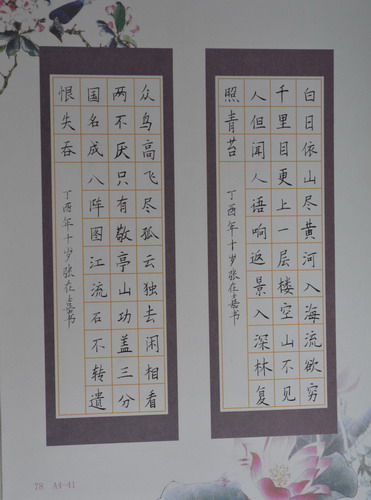 白日依山尽黄河入海流欲穷
千里目更上一层楼空山不见
人但闻人语响返景入深林复
照青苔
丁酉年十岁张在嘉书
众鸟高飞尽孤云独去闲相看
两不厌只有敬亭山功盖三分
国名成八阵图江流石不转遗
恨失吞
丁酉年十岁张在嘉书
78 A4-41